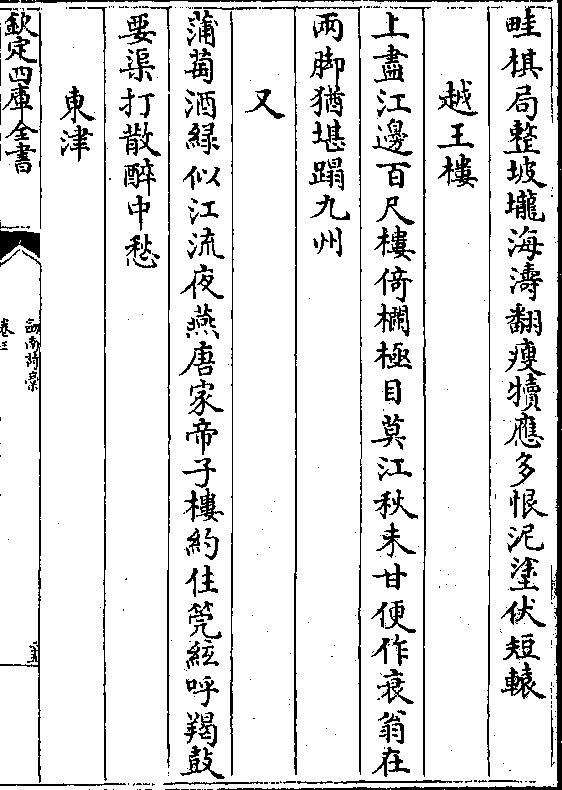 畦棋局整坡壠海濤翻瘦犢應多恨泥塗伏短轅
越王樓
上盡江邊百尺樓倚欄極目莫江秋未甘便作衰翁在
兩脚猶堪蹋九州
又
蒲萄酒緑似江流夜燕唐家帝子樓約住筦絃呼羯鼓
要渠打散醉中愁
東津
欽定四庫全書
劒南詩稾
卷三